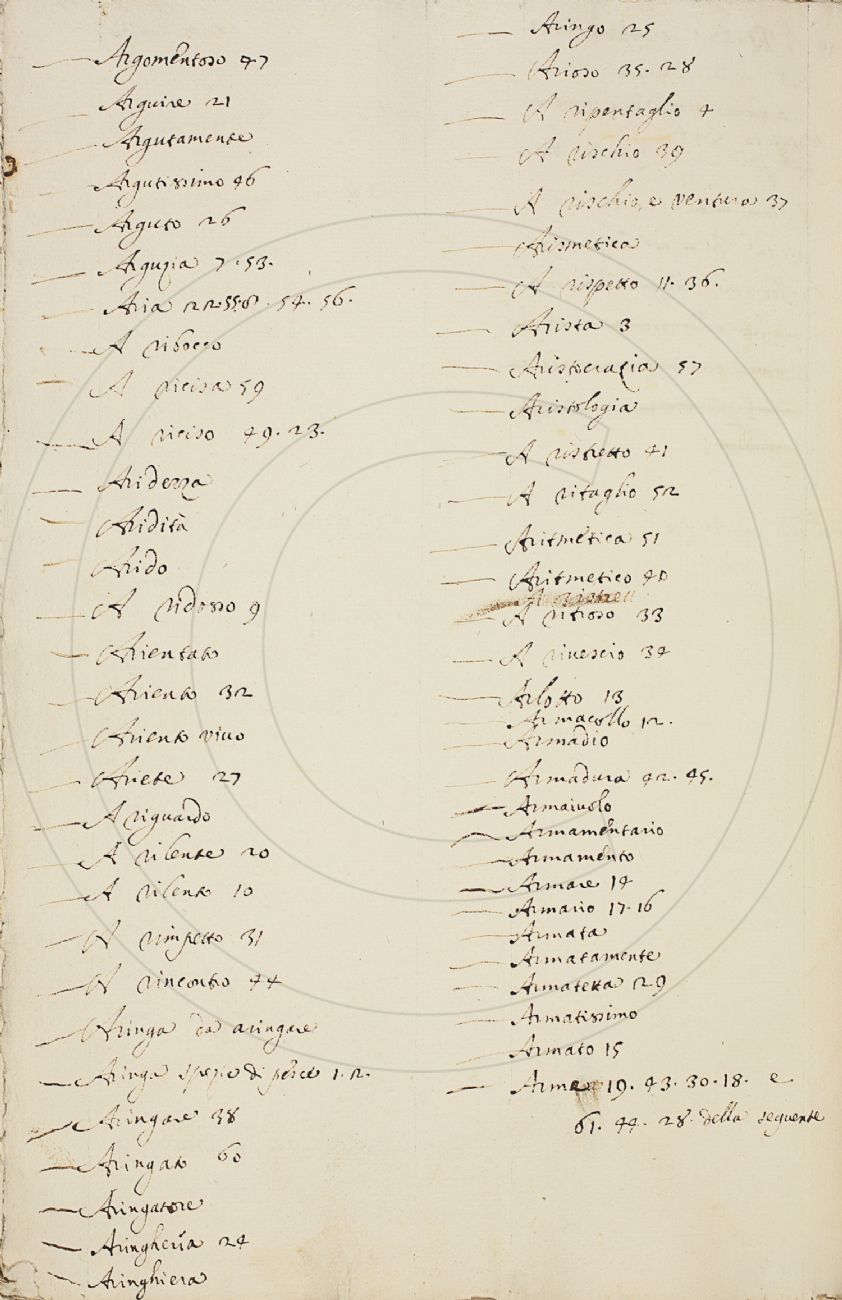 Argomentoso 47
Arguire 21
Argutamente
Argutissimo 46
Arguto 26
Arguzia 7. 53.
Aria 54. 56.
A ribocco
A ricisa 59
A riciso 49. 23.
Aridezza
Aridità
Arido
A ridosso 9
Arientato
Ariento 32
Ariento vivo
Ariete 27
A riguardo
A rilente 20
A rilento 10
A rimpetto 31
A rincontro 44
Aringa da aringare
Aringa spezie di pesce 1. 2.
Aringare 38
Aringato 60
Aringatore
Aringheria 24
Aringhiera
Aringo 25
Arioso 35. 28
A ripentaglio 4
A rischio 39
A rischio, e ventura 37
Arismetica
A rispetto 11. 36.
Arista 3
Aristocrazia 57
Aristologia
A ristretto 41
A ritaglio 52
Aritmetica 51
Aritmetico 40
A ritroso 33
A rivescio 34
Arlotto 13
Armacollo 12.
Armadio
Armadura 42. 45.
Armaiuolo
Armamentario
Armamento
Armare 14
Armario 17. 16
Armata
Armatamente
Armatetta 29
Armatissimo
Armato 15
Arme 19. 43. 30. 18. e
61. 44. 28. della seguente